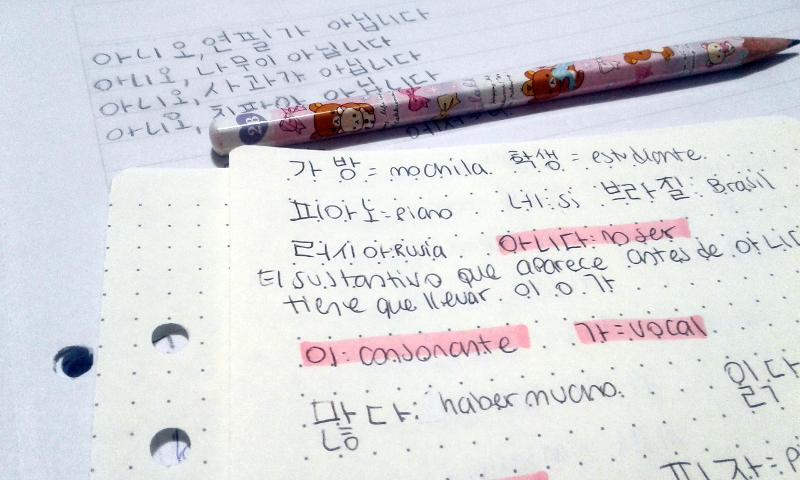 아니오, 연필가 아닙니다
아니오, 나무이 아닙니다
아니오, 사과가 아닙니다
아니오, 아닙니다
2B
가방 = mochila. 학생 = estudiante.
피아노 = piano 네: si 브라질: Brasil
러시아: Rusia 아니다: no ser
El sustantivo que aparece antes de 아니다
tiene que llevar 이 o 가
이: consonante 가 = vocal
많다: haber mucho. 읽다
피자: P